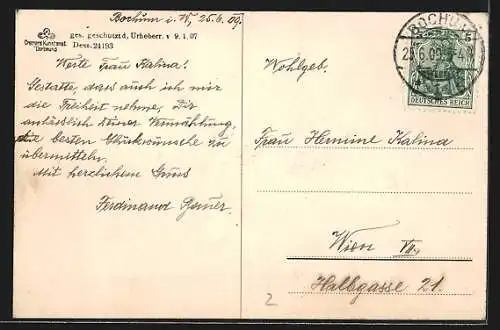 Bochum i. W, 25.6.09.
ges. geschützt, Urheberr. v 9.1.07
Dess. 24193
Werte Frau Kalina!
Gestatte, dass auch ich mir
die Freiheit nehme, Dir
anlässlich Deiner Vermählung,
die besten Glückwünsche zu
übermitteln.
Mit herzlichem Gruss
Ferdinand
BOCHUM
DEUTSCHES REICH
Wohlgeb.
Frau Hermine Kalina
Wien VII.
Halbgasse 21.
2